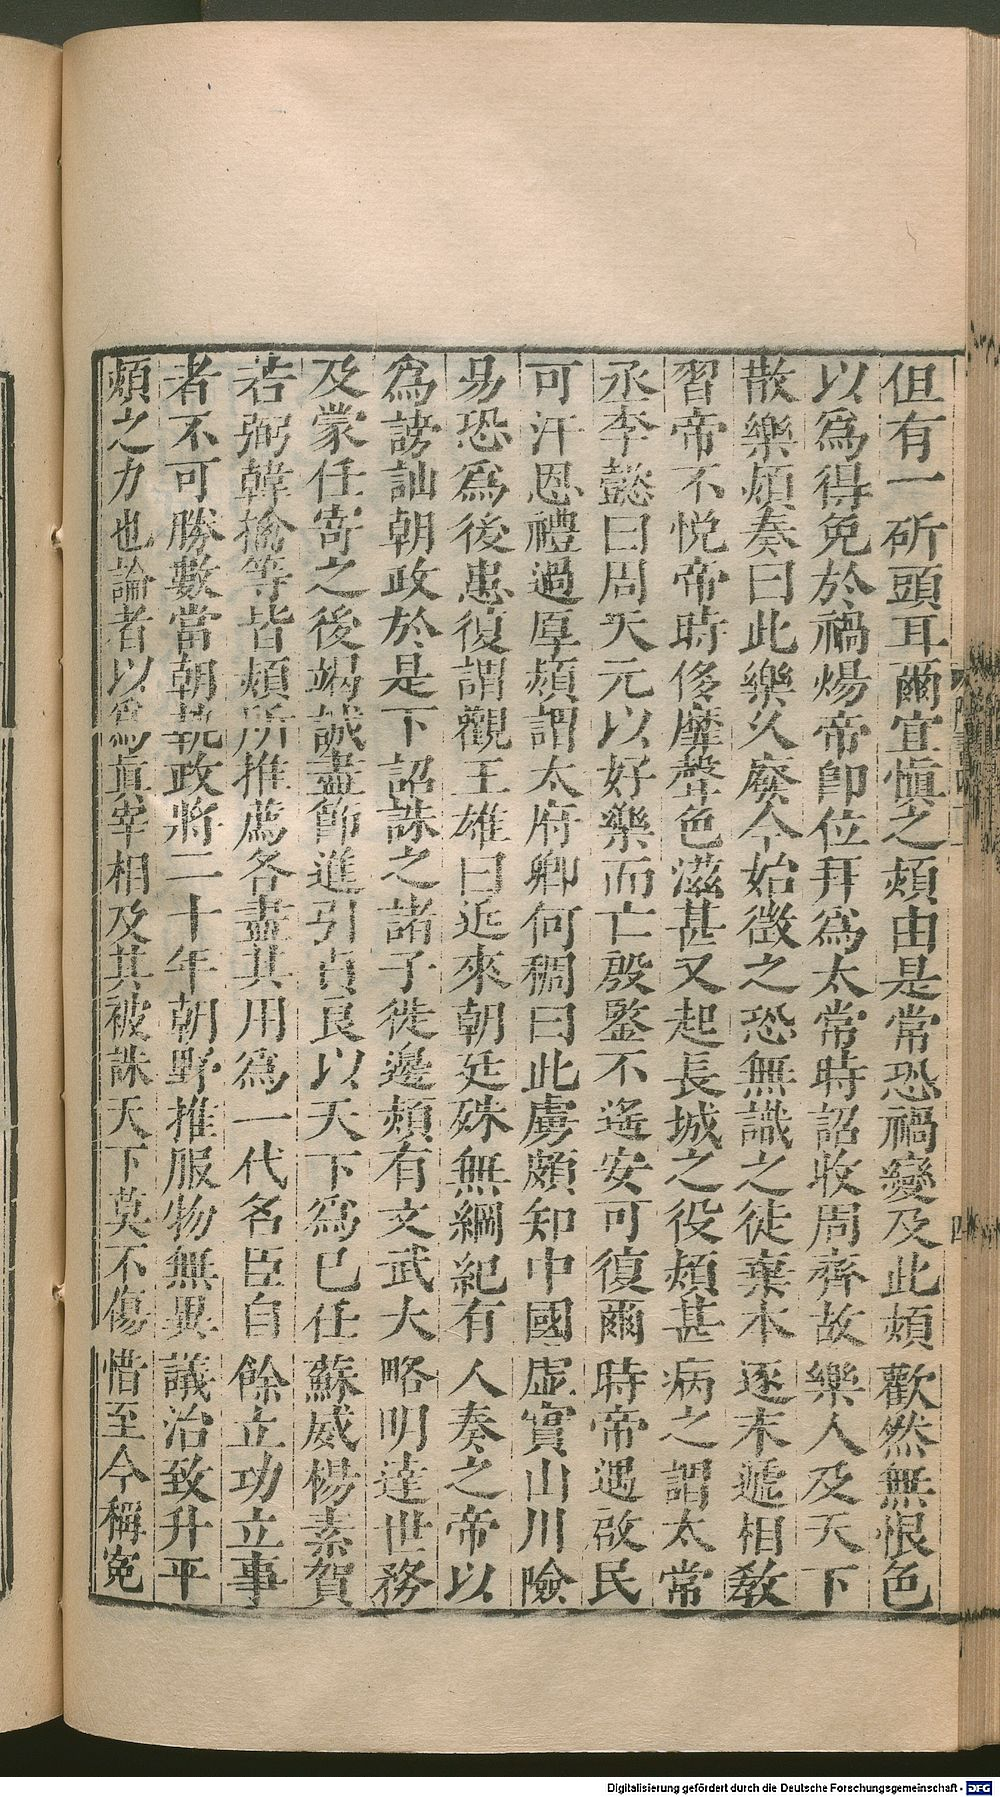 但有一斫頭耳爾宜愼之熲由是常恐禍變及此熲歡然無恨色
以爲得免於禍煬帝卽位拜爲太常時詔收周齊故樂人及天下
散樂熲奏曰此樂久廢今始徵之恐無識之徒棄本逐末遞相敎
習帝不悅帝時侈靡聲色滋甚又起長城之役熲甚病之謂太常
丞李懿曰周天元以好樂而亡殷鑒不遙安可復爾時帝遇啟民
可汗恩禮過厚熲謂太府卿何稠曰此虜頗知中國虛實山川險
易恐爲後患復謂觀王雄曰近來朝廷殊無綱紀有人奏之帝以
爲謗訕朝政於是下詔誅之諸子徙邊熲有文武大略明達世務
及蒙任寄之後竭誠盡節進引貞良以天下爲已任蘇威楊素賀
若弼韓擒等皆熲所推薦各盡其用爲一代名臣自餘立功立事
者不可勝數當朝執政將二十年朝野推服物無異議治致升平
熲之力也論者以爲眞宰相及其被誅天下莫不傷惜至今稱寃
Digitalisierung gefördert durch die Deutsche Forschungsgemeinschaft - DFG